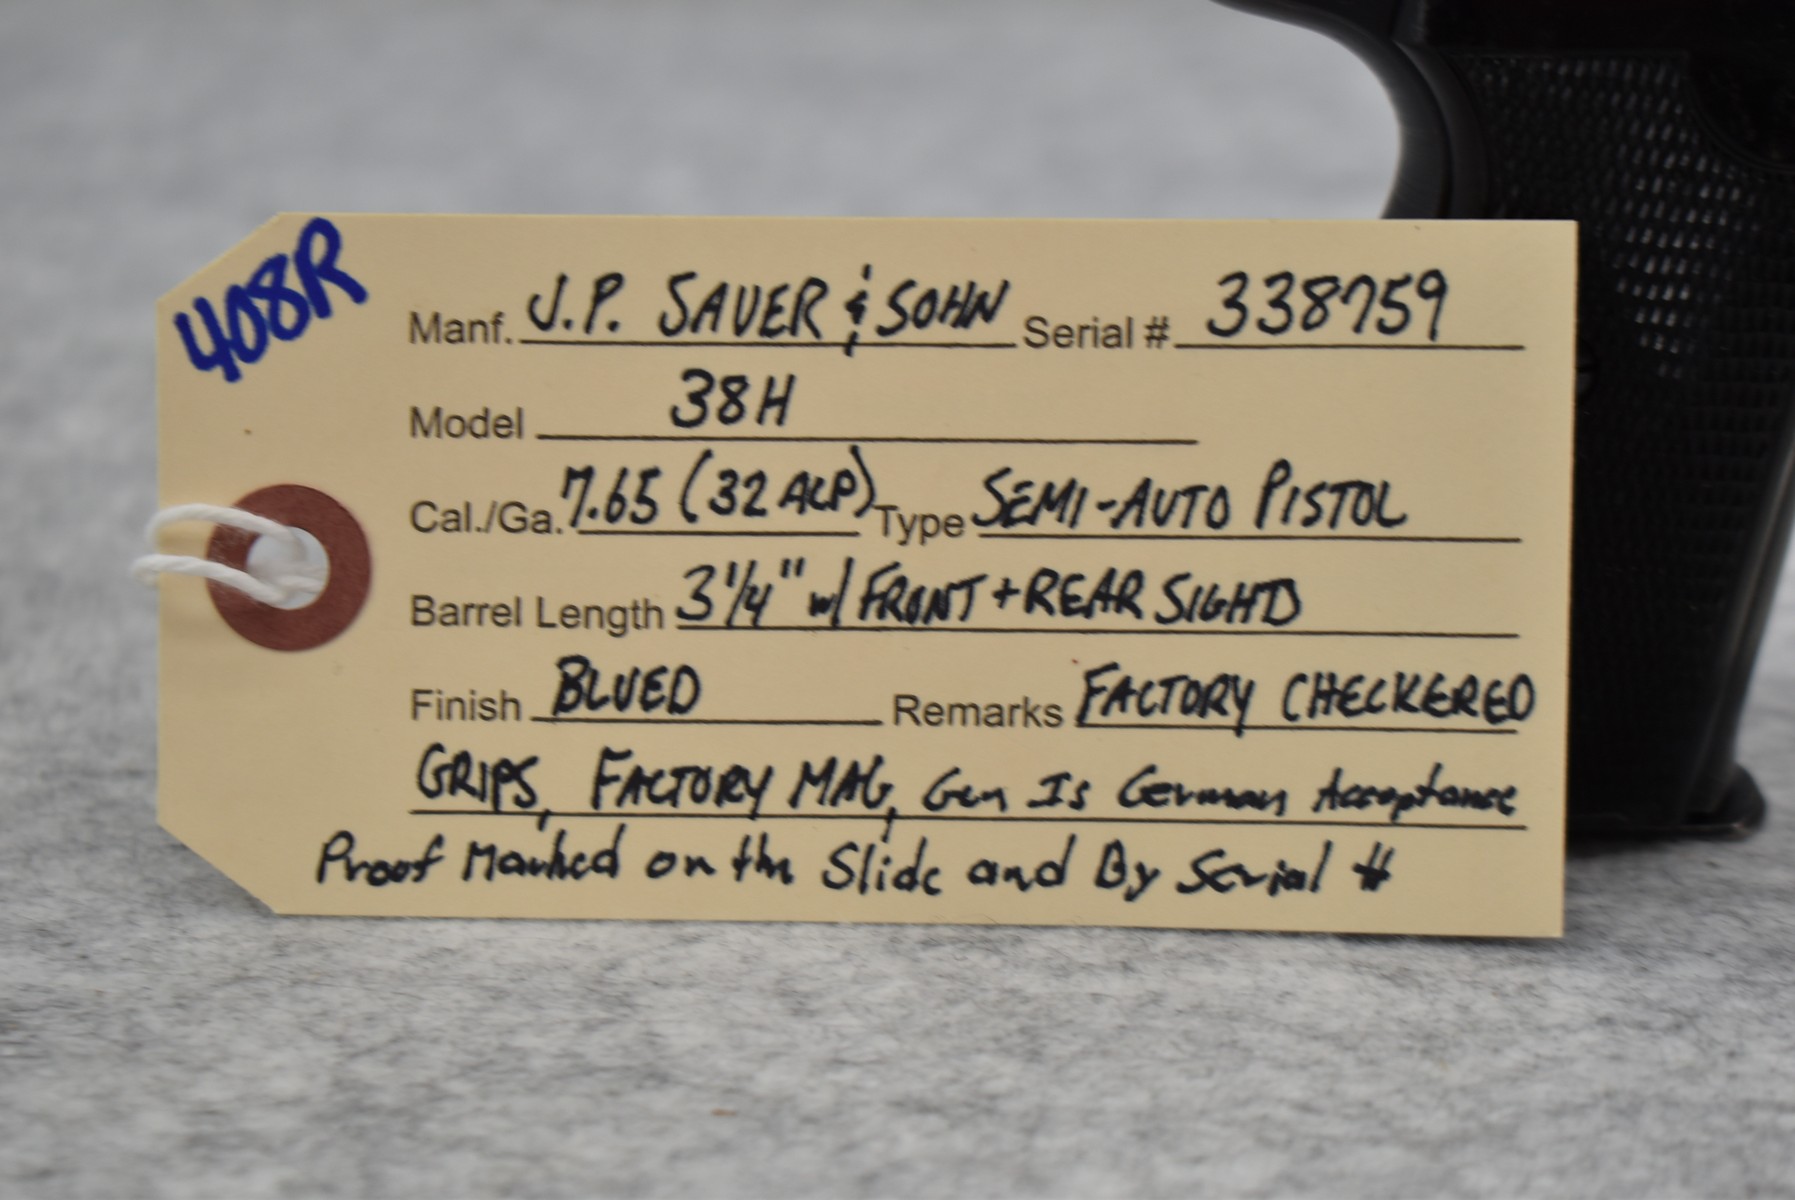 408R
Manf. J.P. SAUER & SOHN Serial # 338759
Model 38H
Cal./Ga. 7.65 (32 ACP) Type SEMI-AUTO PISTOL
Barrel Length 3 1/4" w/ FRONT + REAR SIGHT
Finish BLUED Remarks FACTORY CHECKERED
GRIPS, FACTORY MAG, Gun Is German Acceptance
Proof Marked on the Slide and By Serial #